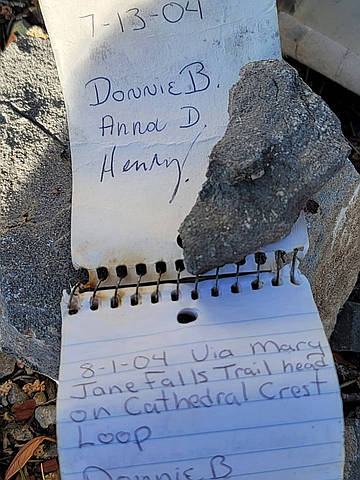 7-13-04
Donnie B.
Anna D.
Henry!
8-1-04 Via Mary
Jane Falls Trail head
on Cathedral Crest
Loop
Donnie B